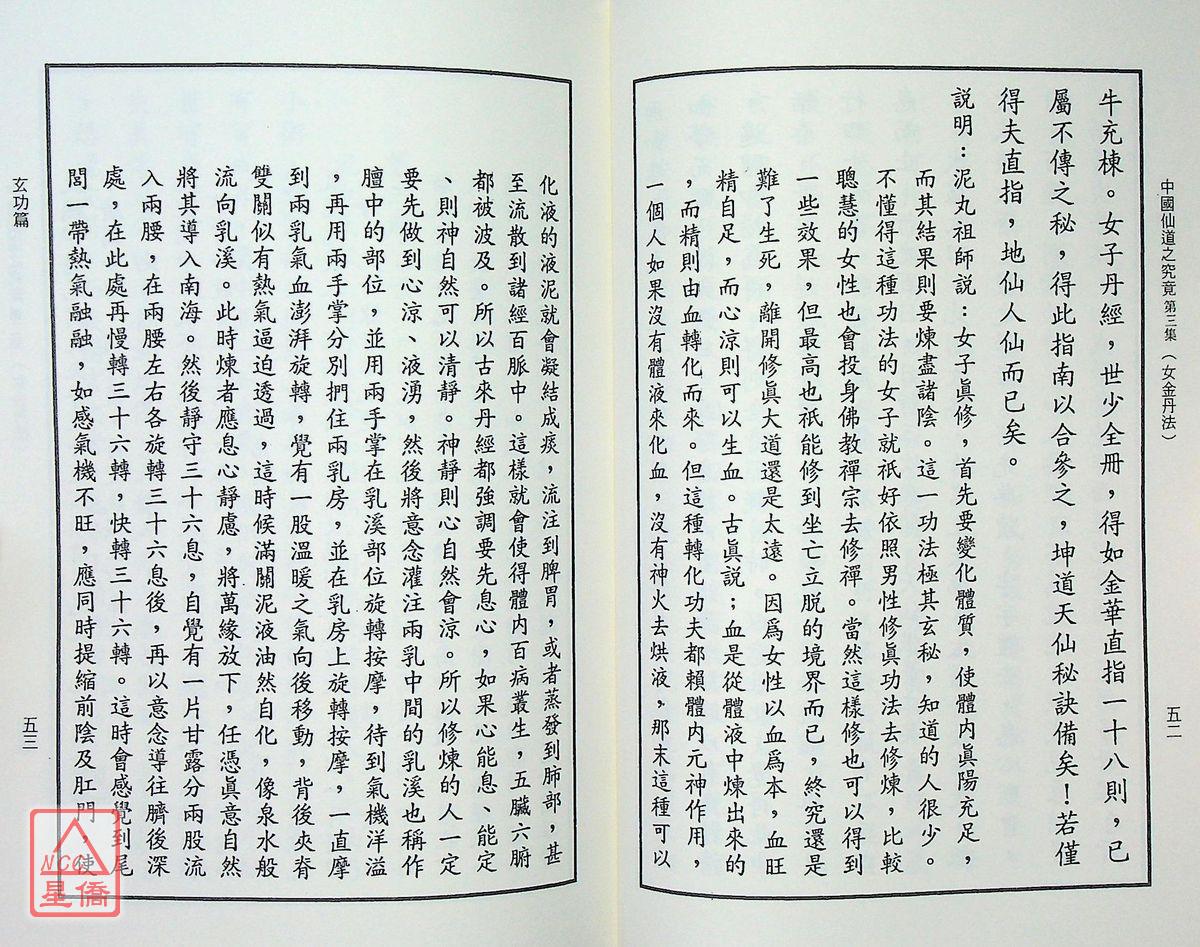 中國仙道之究竟 第三集（女金丹法）
五二
牛充棟。女子丹經，世少全冊，得如金華直指一十八則，已
屬不傳之秘，得此指南以合參之，坤道天仙秘訣備矣！若僅
得夫直指，地仙人仙而已矣。
説明：泥丸祖師説：女子眞修，首先要變化體質，使體內眞陽充足，
而其結果則要煉盡諸陰。這一功法極其玄秘，知道的人很少。
不懂得這種功法的女子就祇好依照男性修眞功法去修煉，比較
聰慧的女性也會投身佛教禪宗去修禪。當然這樣修也可以得到
一些效果，但最高也祇能修到坐亡立脱的境界而已，終究還是
難了生死，離開修眞大道還是太遠。因爲女性以血爲本，血旺
精自足，而心涼則可以生血。古眞説；血是從體液中煉出來的
，而精則由血轉化而來。但這種轉化功夫都賴體內元神作用，
一個人如果沒有體液來化血，沒有神火去烘液，那末這種可以
化液的液泥就會凝結成痰，流注到脾胃，或者蒸發到肺部，甚
至流散到諸經百脈中。這樣就會使得體內百病叢生，五臟六腑
都被波及。所以古來丹經都強調要先息心，如果心能息、能定
、則神自然可以清靜。神靜則心自然會涼。所以修煉的人一定
要先做到心涼、液湧，然後將意念灌注兩乳中間的乳溪也稱作
膻中的部位，並用兩手掌在乳溪部位旋轉按摩，待到氣機洋溢
，再用兩手掌分別捫住兩乳房，並在乳房上旋轉按摩，一直摩
到兩乳氣血澎湃旋轉，覺有一股溫暖之氣向後移動，背後夾脊
雙關似有熱氣逼迫透過，這時候滿關泥液油然自化，像泉水般
流向乳溪。此時煉者應息心靜慮，將萬緣放下，任憑眞意自然
將其導入南海。然後靜守三十六息，自覺有一片甘露分兩股流
入兩腰，在兩腰左右各旋轉三十六息後，再以意念導往臍後深
處，在此處再慢轉三十六轉，快轉三十六轉。這時會感覺到尾
閭一帶熱氣融融，如感氣機不旺，應同時提縮前陰及肛門，使
玄功篇
五三
NCC
星僑